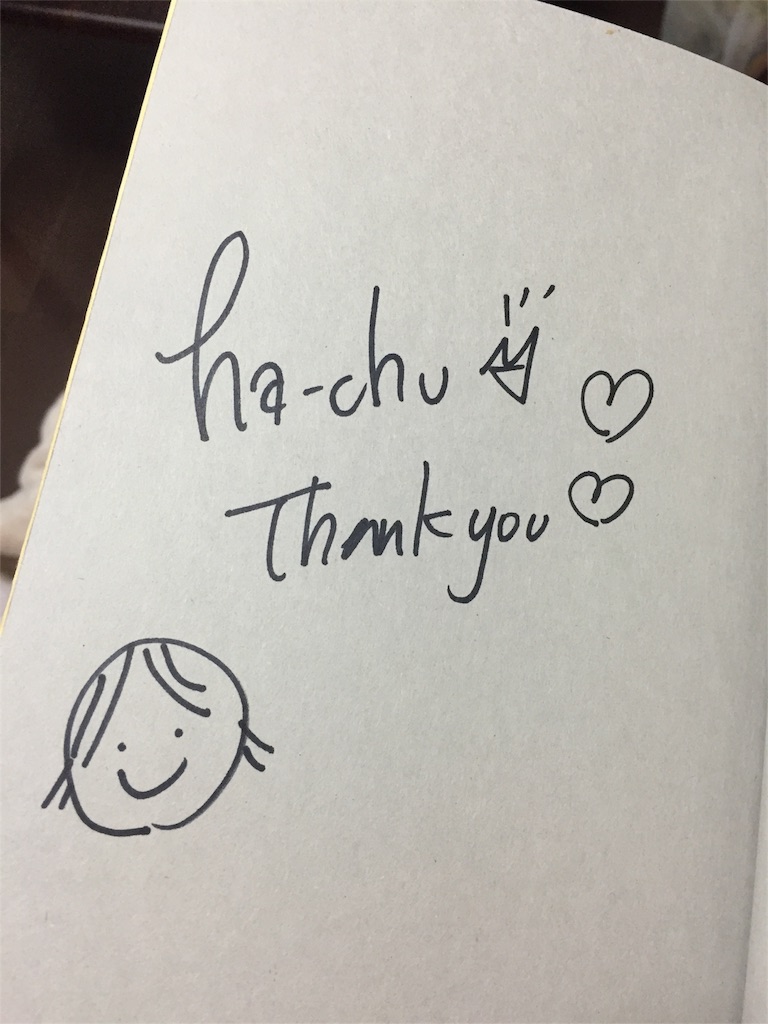 ha-chu
Thank you